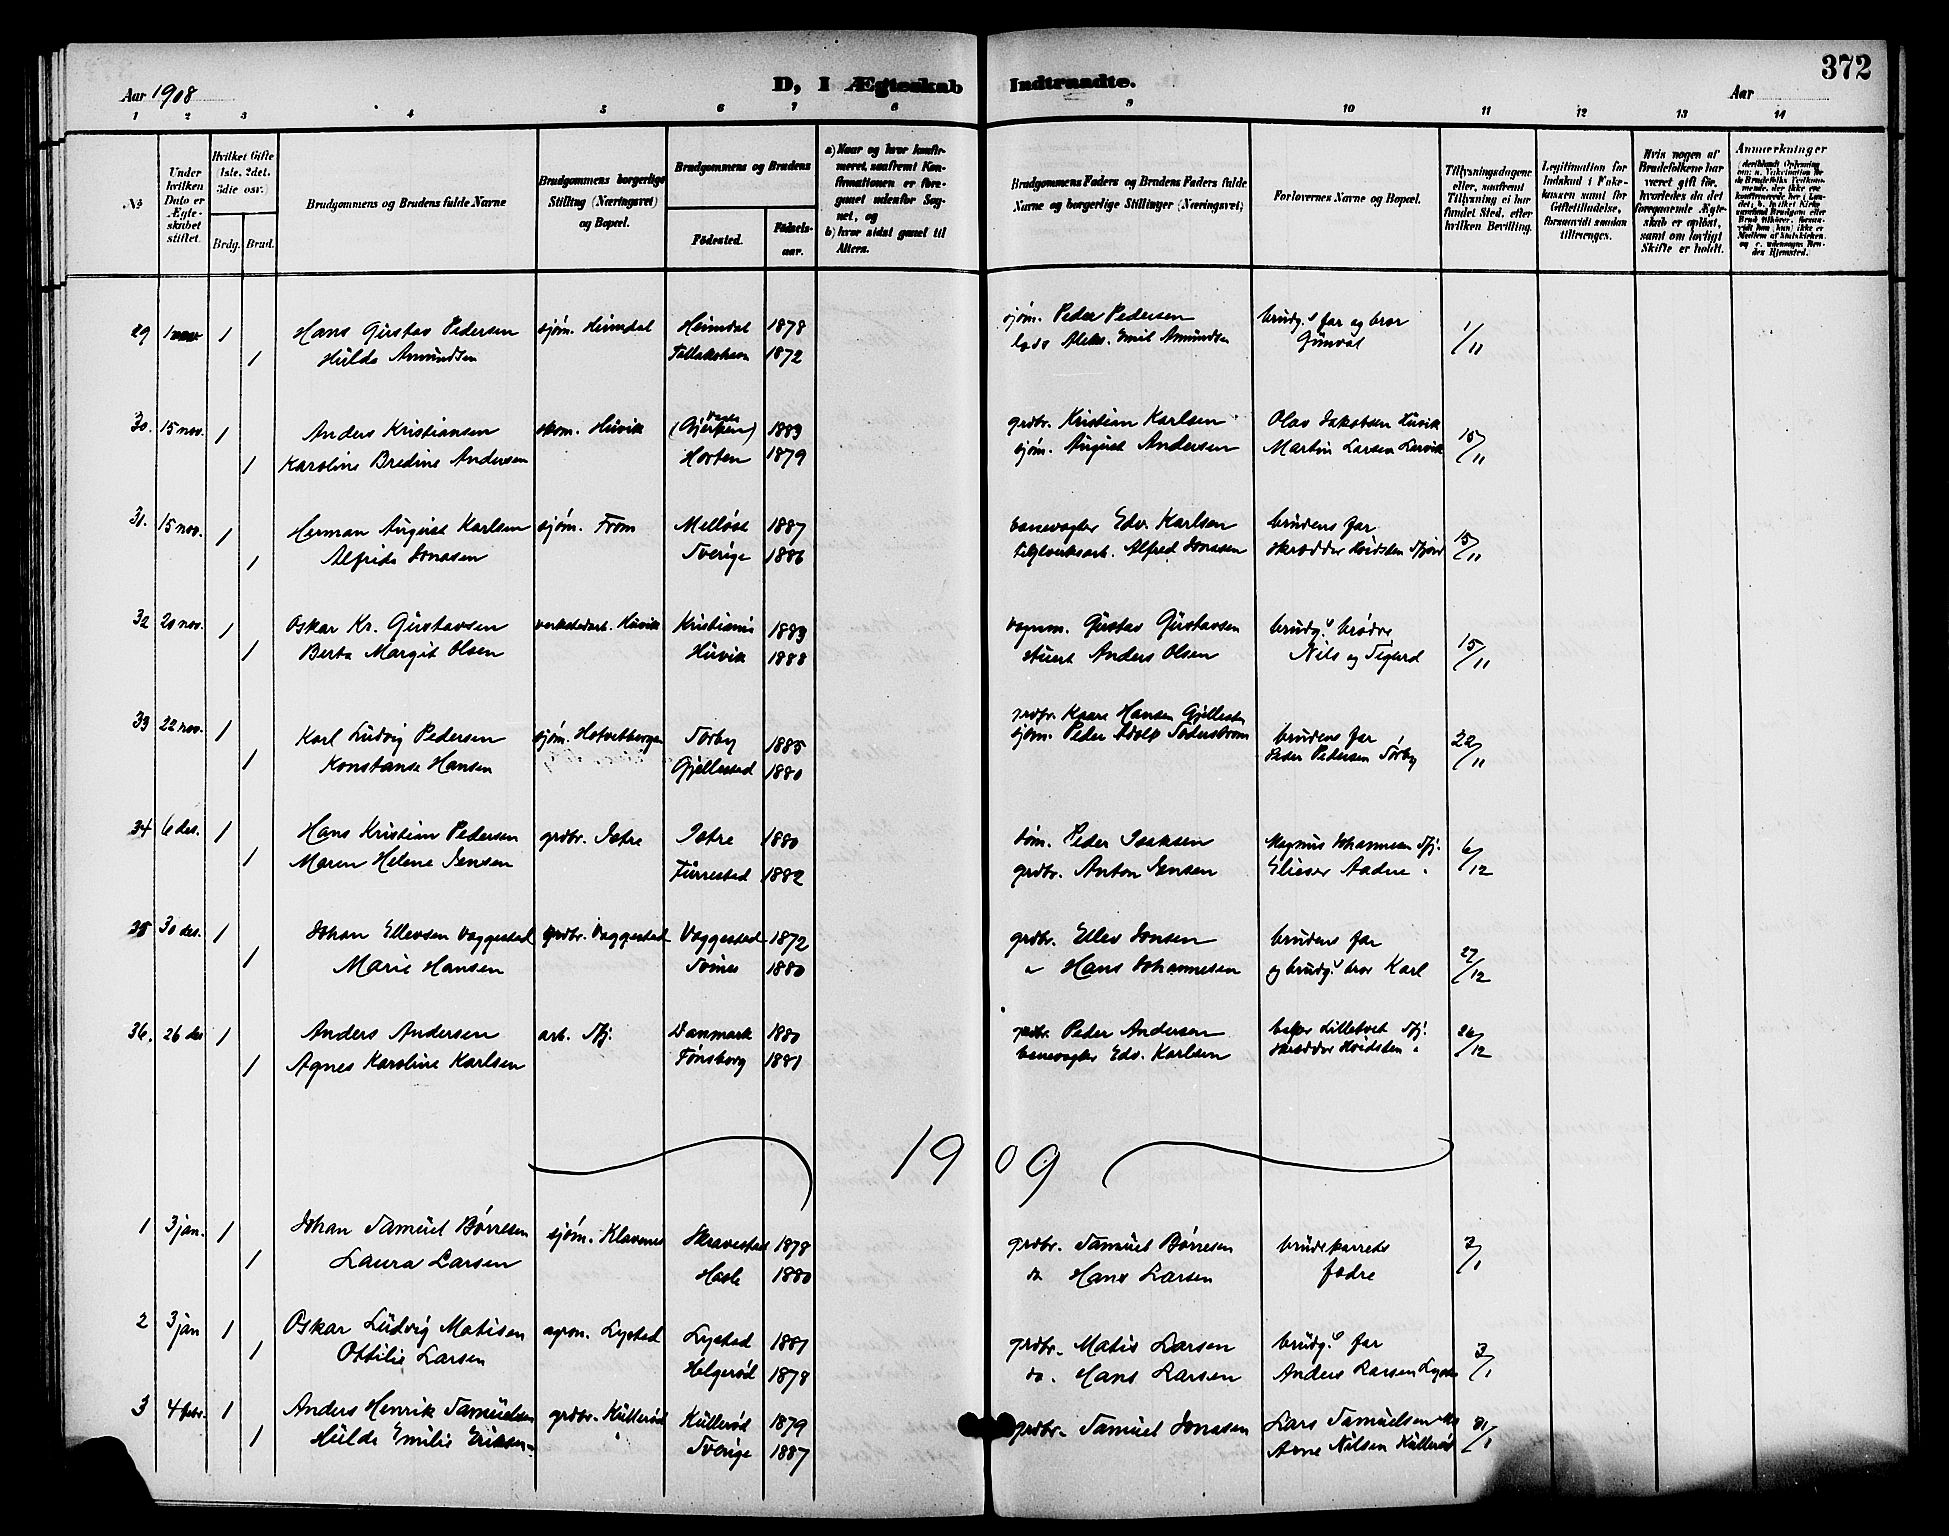 372
Aar 1908
D, I Ægteskab Indtraadte.
Aar
1 2 3 4 5 6 7 8 9 10 11 12 13 14
№
Under hvilken Dato er Ægteskabet stiftet.
Hvilket Gifte (1ste, 2det, 3die osv.)
Brdg. Brud.
Brudgommens og Brudens fulde Navne
Brudgommens borgerlige Stilling (Næringsvei) og Bopæl.
Brudgommens og Brudens
Fødested. Fødselsaar.
a) Naar og hvor konfirmeret, naafremt Konfirmationen er foregaaet udenfor Sognet, og
b) hvor sidst gaaet til Alters.
Brudgommens Faders og Brudens Faders fulde Navne og borgerlige Stillinger (Næringsvei)
Forlovernes Navne og Bopæl.
Tillysningsdagene eller, naafremt Tillysning ei har fundet Sted, efter hvilken Bevilling.
Legitimation for Indskud i Enkekassen samt for Giftetilladelse, forsaavidt saadan tiltrænges.
Hvis nogen af Brudefolkene har været gift før, hvorledes da det foregaaende Ægteskab er opløst, samt om lovligt Skifte er holdt.
Anmærkninger
29 1 nov 1 Hans Gustav Pedersen sjøm. Heimdal Heimdal 1878 sjøm. Peder Pedersen brudg.s far og bror 1/11
1 Hulda Amundsen 1872 Aleks. Emil Amundsen Gunval
30. 15 nov. 1 Anders Kristiansen skom. Huvik (Gjerpen) 1883 grdbr. Kristian Karlsen Olav Jakobsen Huvik 15/11
1 Karoline Bredine Andersen Horten 1879 sjøm. August Andersen Martin Larsen Larvik
31. 15 nov. 1 Herman August Karlsen sjøm. From Melløse 1887 banevogter Edv. Karlsen brudens far 15/11
1 Alfrida Jonasen Sverige 1886 Alfred Jonasen skrædder Hvidsten Sfjord
32 20 nov. 1 Oskar Kr. Gustavsen verkstedarb. Huvik Kristiania 1883 vognm. Gustav Gustavsen brudg.s brødre 15/11
1 Berta Margit Olsen Huvik 1888 stuert Anders Olsen Nils og Sigurd
33 22 nov. 1 Karl Ludvig Pedersen sjøm. Hotvetbergen Torby 1885 grdbr. Kaare Hansen Gjellestad brudens far 22/11
1 Konstanse Hansen Gjellestad 1880 sjøm. Peder Adolf Søderstrøm Peder Pedersen Torby
34 6 des. 1 Hans Kristian Pedersen grdbr. Istre Istre 1880 tøm. Peder Isaksen Magnus Johannesen Sfj. 6/12
1 Maren Helene Jensen Furrestad 1882 grdbr. Anton Jensen Elieser Aadne "
35 30 des. 1 Johan Ellevsen Vaggestad grdbr. Vaggestad Vaggestad 1872 grdbr. Ellev Jonsen brudens far 27/12
1 Marie Hansen 1880 " Hans Johannesen og brudg.s bror Karl
36. 26 des 1 Anders Andersen arb. Sfj. Danmark 1880 grdbr. Peder Andersen baker Lilletvet Sfj. 26/12
1 Agnes Karoline Karlsen Tønsberg 1881 banevogter Edv. Karlsen skrædder Hvidsten "
1909
1 3 jan. 1 Johan Samuel Børresen sjøm. Klavenes Skravestad 1878 grdbr. Samuel Børresen brudeparrets 3/1
1 Laura Larsen Hasle 1880 do Hans Larsen fædre
2 3 jan 1 Oskar Ludvig Matisen agron. Lystad Lystad 1881 grdbr. Matis Larsen brudg.s far 3/1
1 Ottilie Larsen Helgerød 1878 do. Hans Larsen Anders Larsen
3 4 febr. 1 Anders Henrik Samuelsen grdbr. Kullerød Kullerød 1879 grdbr. Samuel Jonasen Lars Samuelsen 31/1
1 Hulda Emilie Eriksen Sverige 1887 Arne Nilsen Kullerød